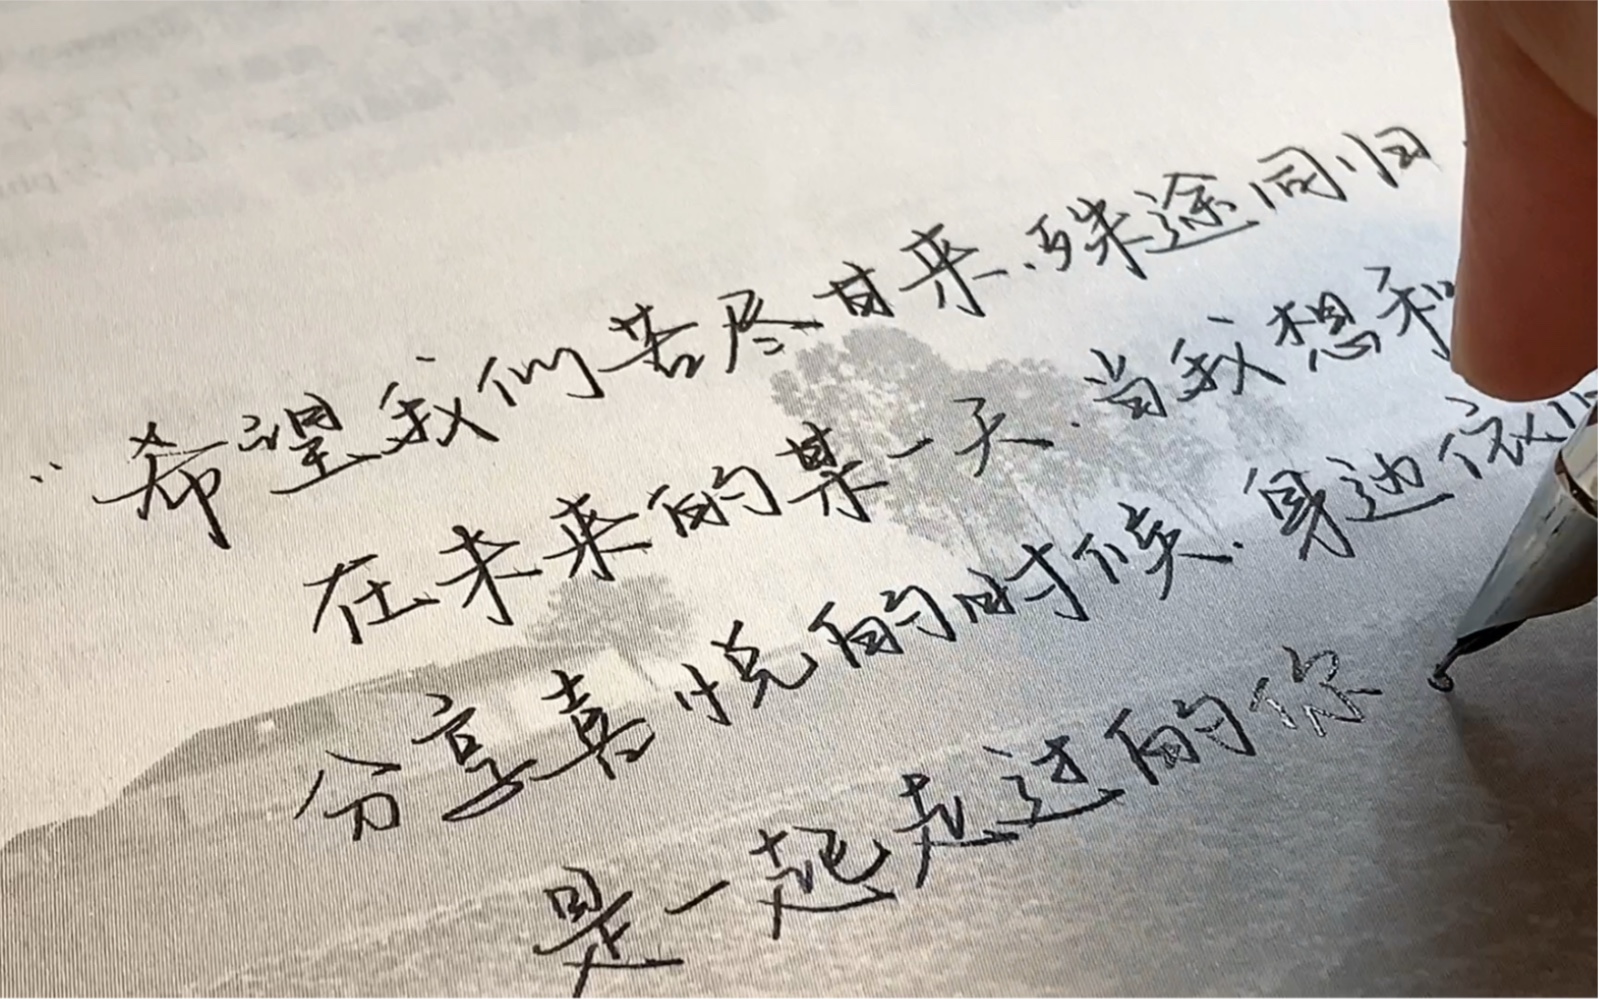 “希望我们苦尽甘来.殊途同归
在未来的某一天.当我想和
分享喜悦的时候.身边依旧
是一起走过的你.